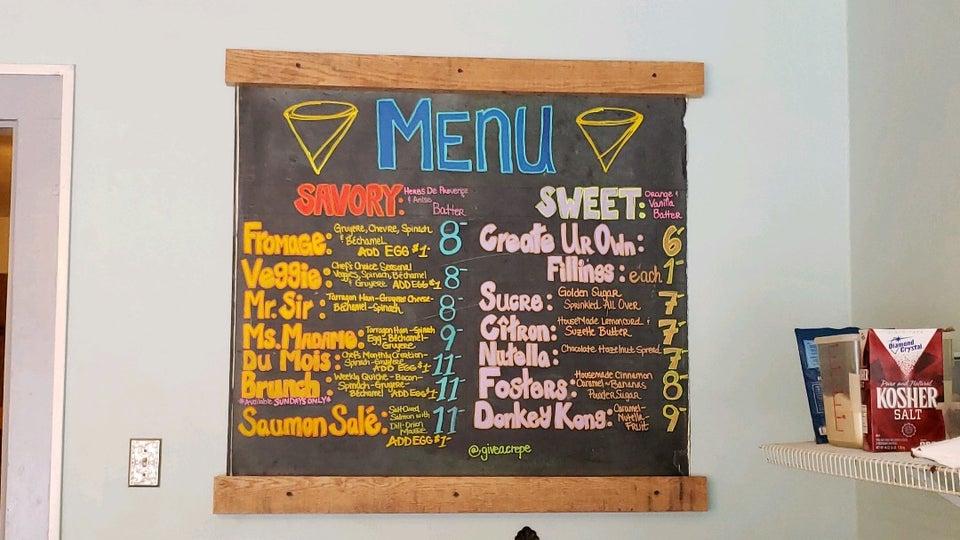 MENU
SAVORY: Herbs De Provence
& Anise
Batter
Fromage: Gruyere, Chevre, Spinach 8-
& Béchamel
ADD EGG $1-
Veggie: Chef's Choice Seasonal 8-
Veggies, Spinach, Béchamel
& Gruyere ADD Egg $1
Mr. Sir: Tarragon Ham-Gruyere Cheese- 8-
Béchamel-Spinach
Ms. Madame: Tarragon Ham-Spinach 9-
Egg-Béchamel-
Gruyere
Du Mois: Chefs Monthly Creation- 11-
Spinach-Gruyere
ADD EGG $1-
Brunch: Weekly Quiche-Bacon- 11-
Spinach-Gruyere-
Béchamel ADD Egg $1-
*Available SUNDAYS ONLY*
Saumon Salé: Salt Cured 11-
Salmon with
Dill-Onion
ADD EGG $1-
SWEET: Orange &
Vanilla
Batter
Create Ur Own: 6-
Fillings: each 1-
Sucre: Golden Sugar 7-
Sprinkled All Over
Citron: HouseMade Lemon curd & 7-
Suzette Butter
Nutella: Chocolate Hazelnut Spread 7-
Fosters: Housemade Cinnamon 8-
Caramel-Bananas
Powder Sugar
Donkey Kong: Caramel- 9-
Nutella-
Fruit
@giveacrepe
Diamond
Crystal
Pure and Natural
KOSHER
SALT